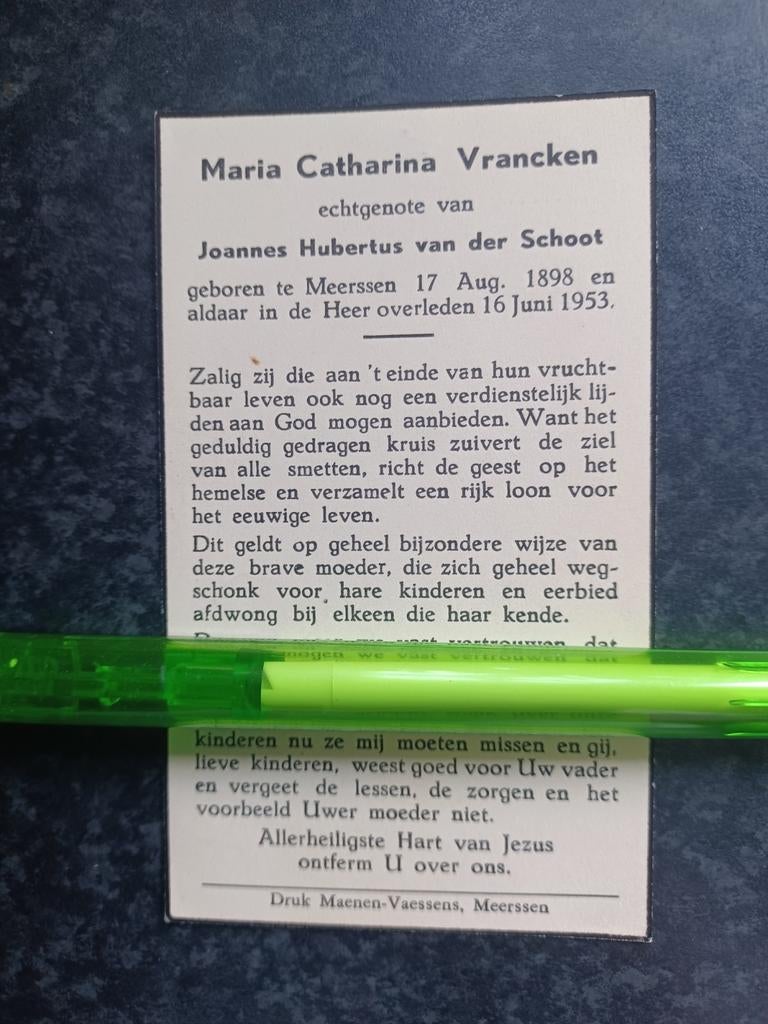 Maria Catharina Vrancken
echtgenote van
Joannes Hubertus van der Schoot
geboren te Meerssen 17 Aug. 1898 en
aldaar in de Heer overleden 16 Juni 1953.
Zalig zij die aan 't einde van hun vrucht-
baar leven ook nog een verdienstelijk lij-
den aan God mogen aanbieden. Want het
geduldig gedragen kruis zuivert de ziel
van alle smetten, richt de geest op het
hemelse en verzamelt een rijk loon voor
het eeuwige leven.
Dit geldt op geheel bijzondere wijze van
deze brave moeder, die zich geheel weg-
schonk voor hare kinderen en eerbied
afdwong bij elkeen die haar kende.
mogen we vast vertrouwen dat
kinderen nu ze mij moeten missen en gij,
lieve kinderen, weest goed voor Uw vader
en vergeet de lessen, de zorgen en het
voorbeeld Uwer moeder niet.
Allerheiligste Hart van Jezus
ontferm U over ons.
Druk Maenen-Vaessens, Meerssen